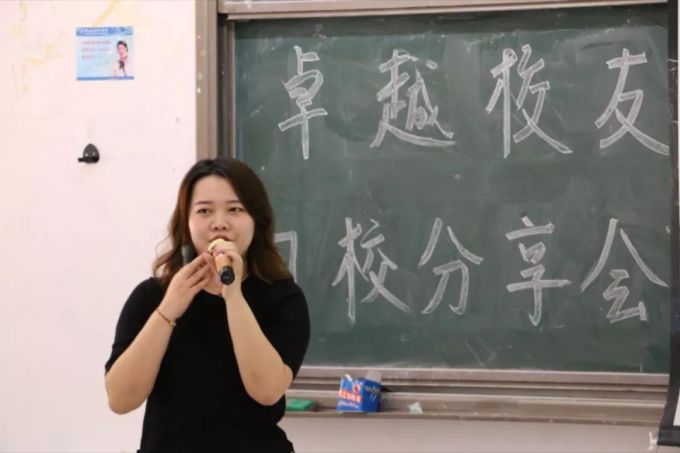 卓越校友
校分享会